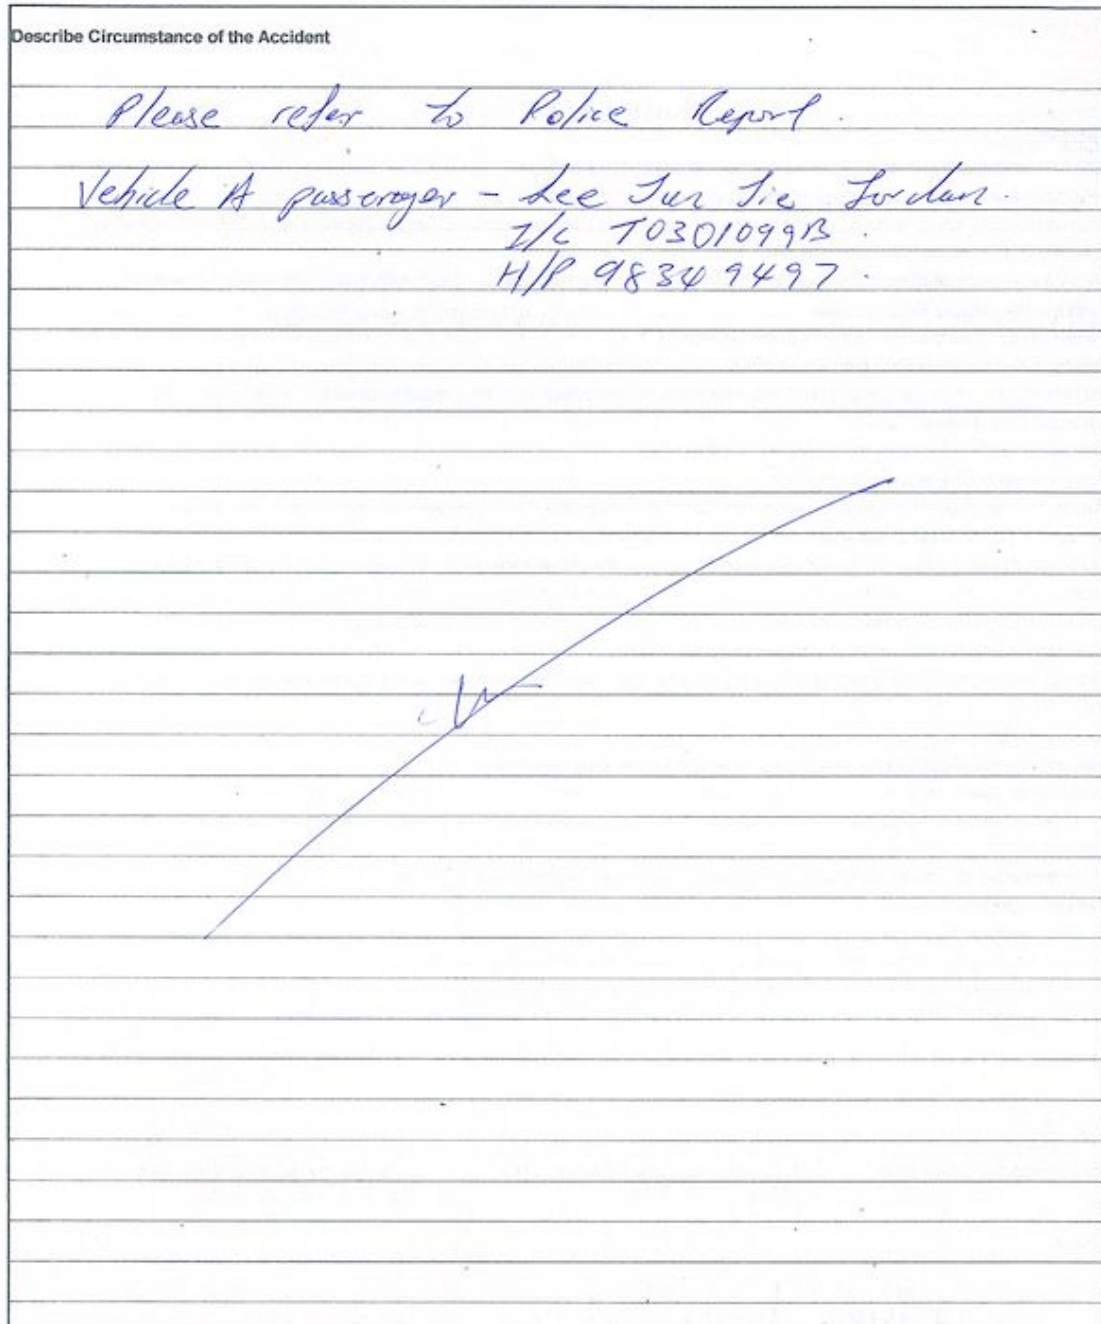 Describe Circumstance of the Accident
Please refer to Police Report.
Vehicle A passenger - Lee Jun Jie Jordan.
I/C T0301099B.
H/P 98349497.